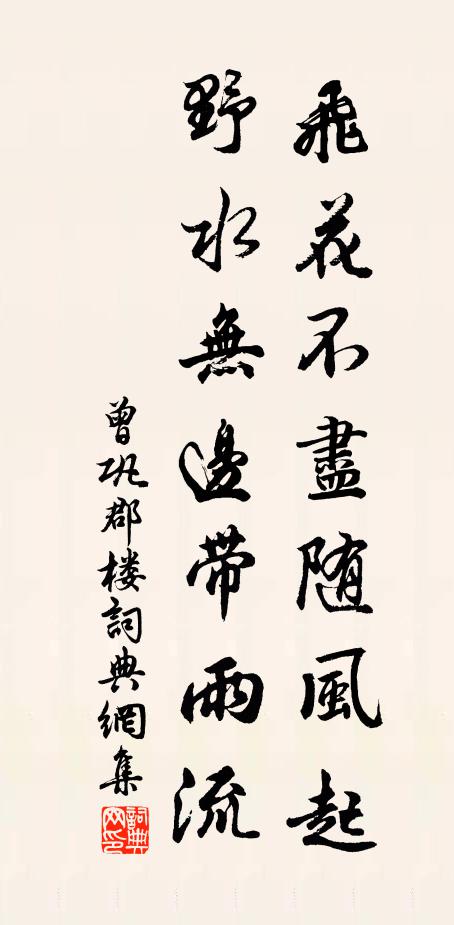 飛花不盡随風起
野水無邊帶雨流
曾巩郡楼詞典網集
詞典
网印